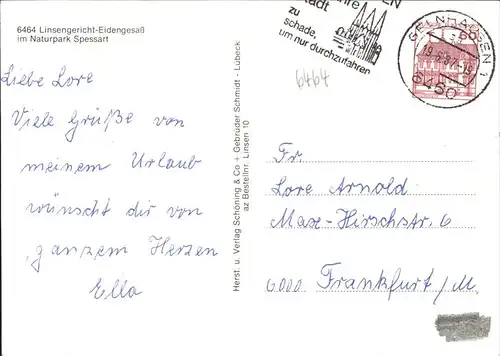 6464 Linsengericht-Eidengesäß
im Naturpark Spessart
Liebe Lore
Viele Grüße von
meinem Urlaub
wünscht dir von
ganzem Herzen
Ella
Herst. u. Verlag Schöning & Co + Gebrüder Schmidt - Lübeck
az Bestellnr. Linsen 10
zu
schade,
um nur durchzufahren
GELNHAUSEN 1
6450
60
6464
Fr.
Lore Arnold
Max-Hirschstr. 6
6000 Frankfurt/M.